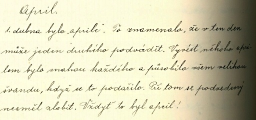 April.
1. dubna bylo „apríl“. To znamenalo, že v ten den
může jeden druhého podvádět. Vyvést někoho apri-
lem bylo snahou každého a působilo všem velikou
švandu, když se to podařilo. Při tom se podvedený
nesměl zlobit. Vždyť to byl apríl!